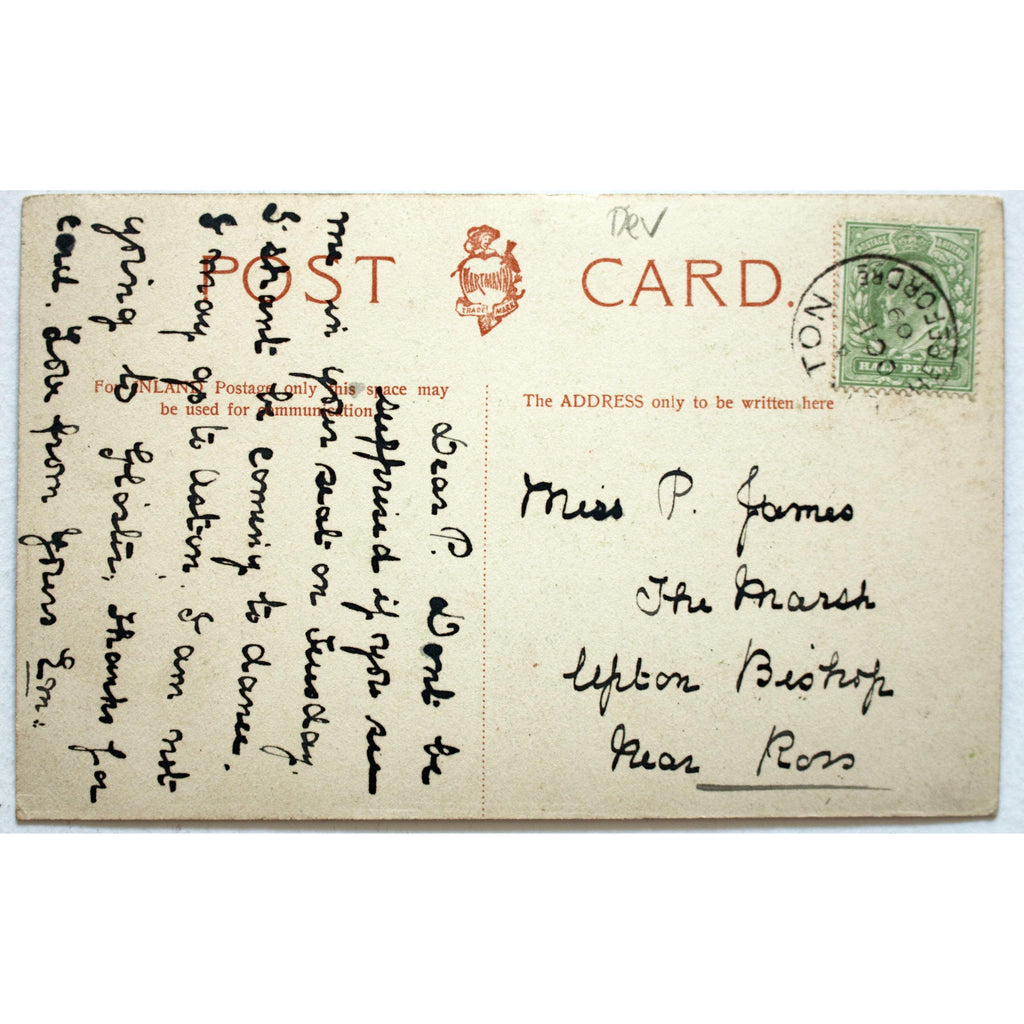 Dev
POST CARD.
HARTMANN
TRADE MARK
POSTAGE & REVENUE
HALF PENNY
TON
OC 1
09
HEREFORDRE
For INLAND Postage only this space may
be used for communication.
The ADDRESS only to be written here
Dear P. Dont be
supprised if you see
me in your seat on Tuesday.
I shant be coming to dance.
I may go to Aston. I am not
going to Gloster, thanks for
card. Love from yours
Miss P. James
The Marsh
Upton Bishop
Near Ross